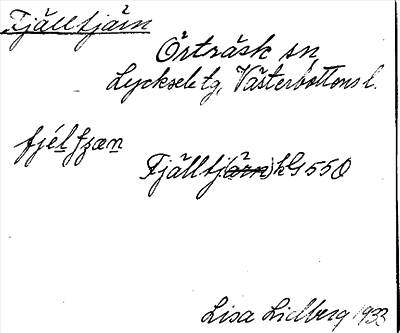 Fjälltjärn
Örträsk sn
Lycksele tg, Västerbottens l.
fjélfzæn
Fjälltj(ärn) kG 550
Lisa Lidberg 1933